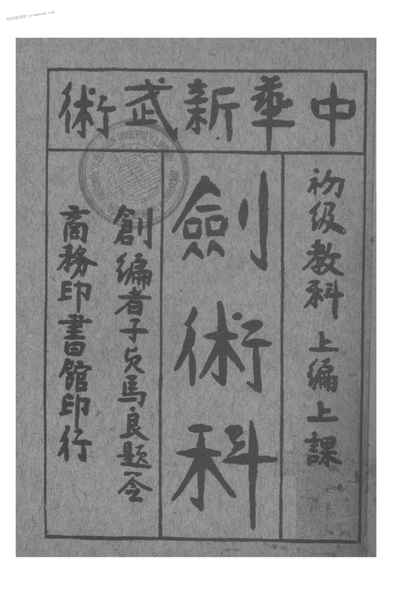 中華新武術
初級教科 上編上課
劍術科
創編者子貞馬良題簽
商務印書館印行